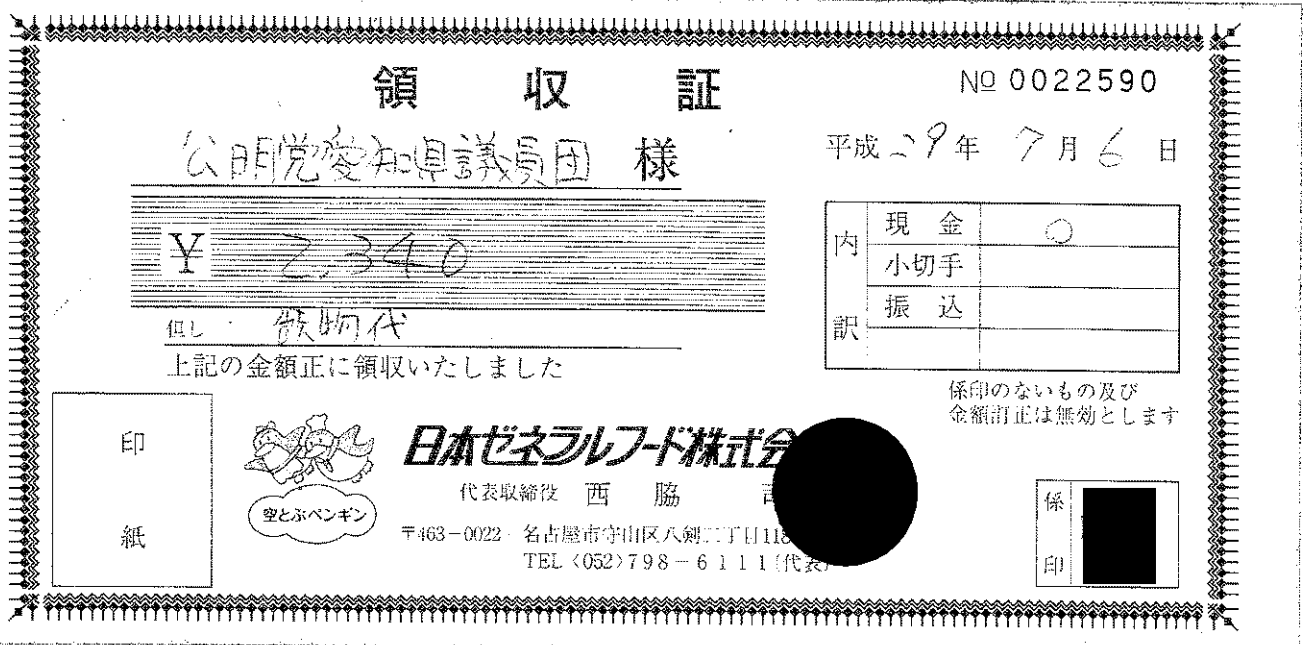 領収証
№ 0022590
公明党愛知県議員団 様
平成29年7月6日
¥ 2,340
但し 飲物代
上記の金額正に領収いたしました
内訳
現金 ○
小切手
振込
係印のないもの及び
金額訂正は無効とします
印紙
空とぶペンギン
日本ゼネラルフード株式会
代表取締役 西脇
〒463-0022 名古屋市守山区八剣二丁目118
TEL〈052〉798-6111(代表)
係印